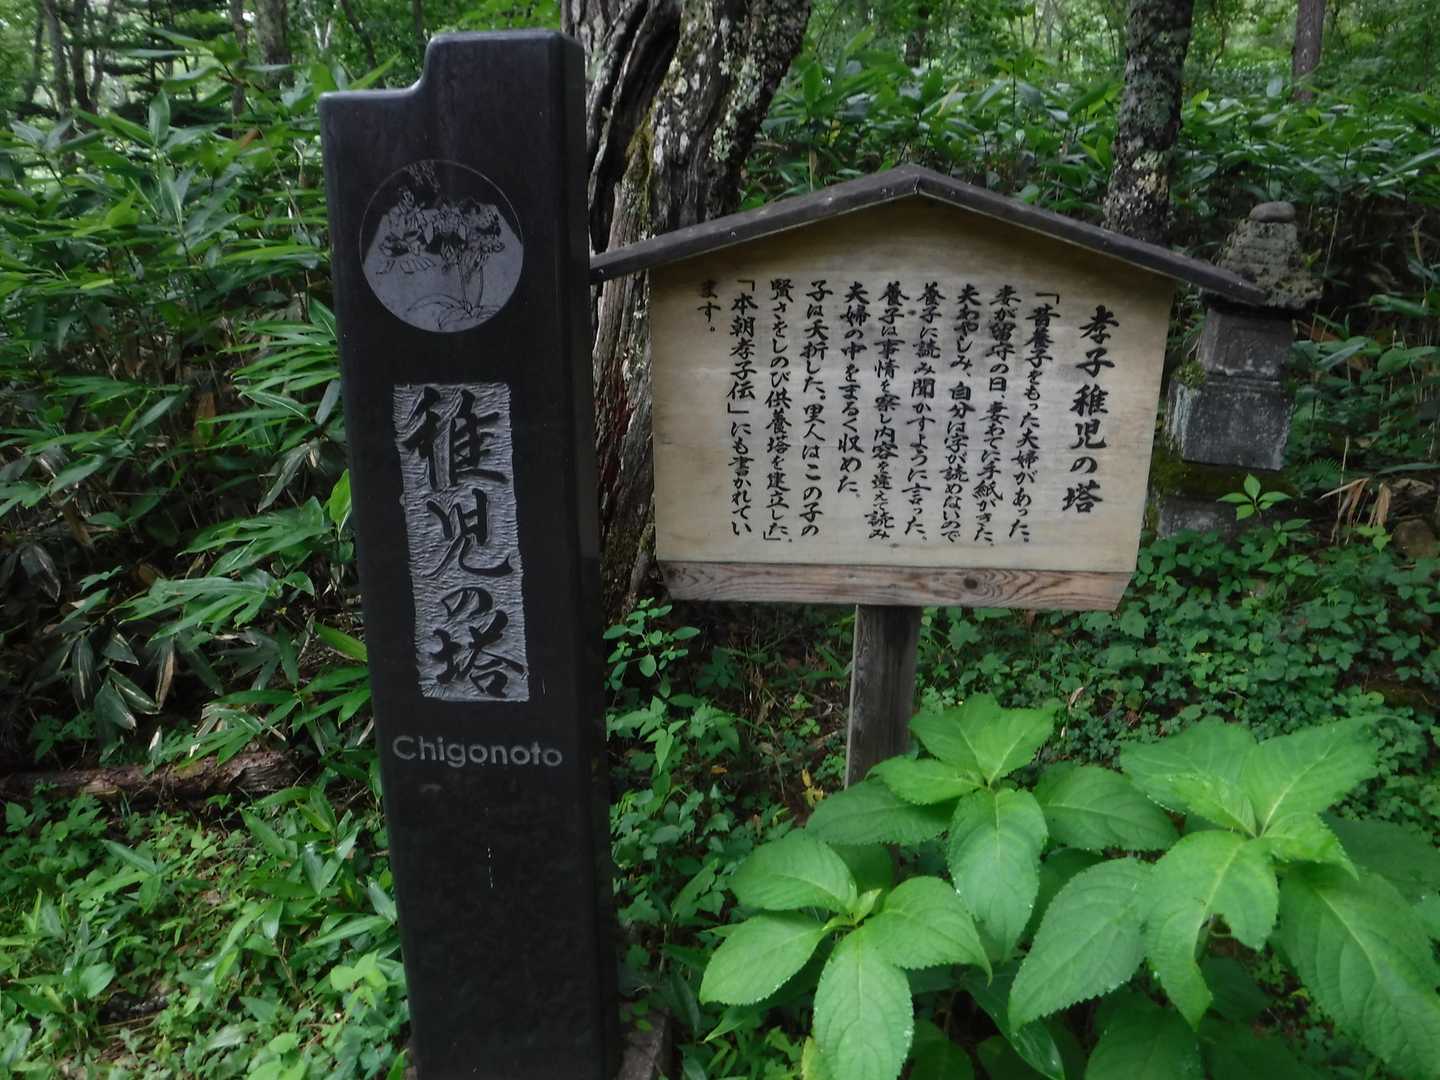 稚児の塔
Chigonoto
孝子稚児の塔
「昔養子をもった夫婦があった。
妻が留守の日、妻あてに手紙がきた、
夫あやしみ、自分は字が読めないので
養子に読み聞かすように言った、
養子は事情を察し内容を違えて読み
夫婦の中をまるく収めた、
子は夭折した、里人はこの子の
賢さをしのび供養塔を建立した」、
「本朝孝子伝」にも書かれてい
ます。